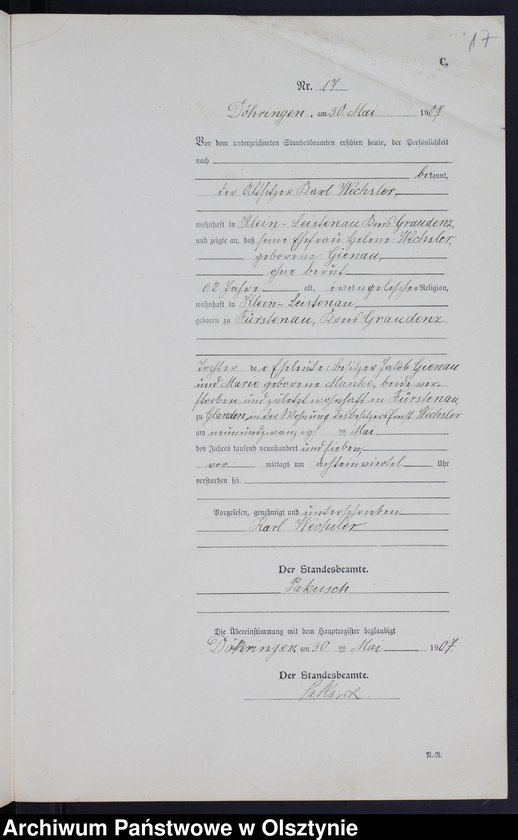 17
C.
Nr. 17
Döhringen, am 30 Mai 1907
Vor dem unterzeichneten Standesbeamten erschien heute, der Persönlichkeit
nach
bekannt,
der Altsitzer Karl Wechsler,
wohnhaft in Klein-Leistenau Kreis Graudenz,
und zeigte an, daß seine Ehefrau Helene Wechsler,
geborene Gienau,
ohne Beruf
62 Jahre alt, evangelischer Religion,
wohnhaft in Klein-Leistenau,
geboren zu Fürstenau, Kreis Graudenz
Tochter der Eheleute: Besitzer Jakob Gienau
und Marie geborene Manke, beide ver-
storben und zuletzt wohnhaft in Fürstenau,
zu Glanden, in der Wohnung des Besitzers Ernst Wechsler
am neunundzwanzigsten Mai
des Jahres tausend neunhundert und sieben,
vor mittags um achteinviertel Uhr
verstorben sei.
Vorgelesen, genehmigt und unterschrieben
Karl Wechsler
Der Standesbeamte.
Pakusch
Die Übereinstimmung mit dem Hauptregister beglaubigt
Döhringen, am 30 ten Mai 1907.
Der Standesbeamte.
Pakusch
N.-N.
Archiwum Państwowe w Olsztynie